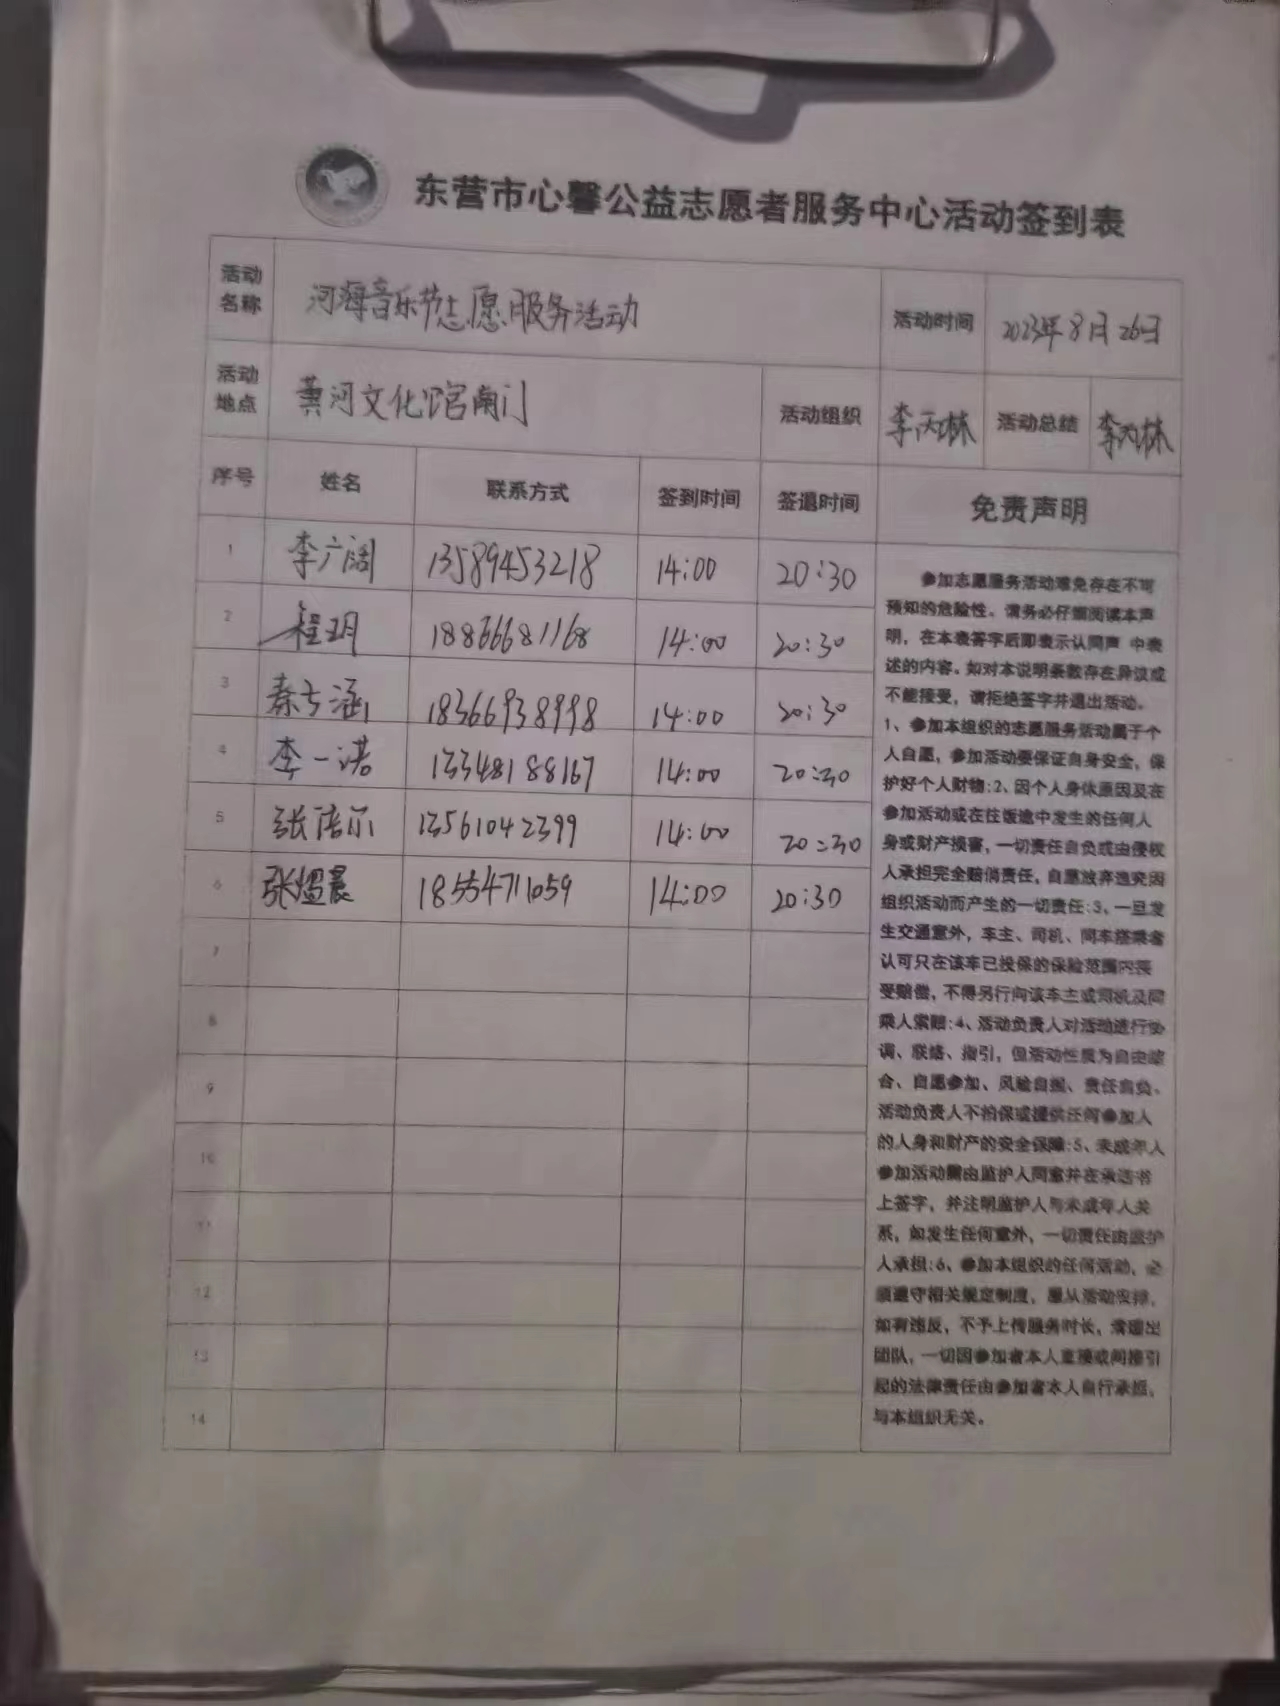 东营市心馨公益志愿者服务中心活动签到表
活动名称 河海音乐节志愿服务活动 活动时间 2023年8月26日
活动地点 黄河文化馆南门 活动组织 李丙林 活动总结 李丙林
序号 姓名 联系方式 签到时间 签退时间 免责声明
1 李广阔 13589453218 14:00 20:30
2 程玥 18866681168 14:00 20:30
3 秦于涵 18366938998 14:00 20:30
4 李一诺 13348188167 14:00 20:30
5 张 13561042399 14:00 20:30
6 张煜晨 18554711059 14:00 20:30
7
8
9
10
11
12
13
14
参加志愿服务活动难免存在不可
预知的危险性。请务必仔细阅读本声
明，在本表签字后即表示认同声 中表
述的内容。如对本说明条款存在异议或
不能接受，请拒绝签字并退出活动。
1、参加本组织的志愿服务活动属于个
人自愿，参加活动要保证自身安全，保
护好个人财物:2、因个人身体原因及在
参加活动或在往饭途中发生的任何人
身或财产损害，一切责任自负或由侵权
人承担完全赔偿责任，自愿放弃追究因
组织活动而产生的一切责任:3、一旦发
生交通意外，车主、司机、同车搭乘者
认可只在该车已投保的保险范围内接
受赔偿，不得另行向该车主或司机及同
乘人索赔:4、活动负责人对活动进行协
调、联络、指引，但活动性质为自由结
合、自愿参加、风险自担、责任自负。
活动负责人不担保或提供任何参加人
的人身和财产的安全保障:5、未成年人
参加活动需由监护人同意并在承诺书
上签字，并注明监护人与未成年人关
系，如发生任何意外，一切责任由监护
人承担:6、参加本组织的任何活动，必
须遵守相关规定制度，服从活动安排，
如有违反，不予上传服务时长，清退出
团队，一切因参加者本人直接或间接引
起的法律责任由参加者本人自行承担，
与本组织无关。